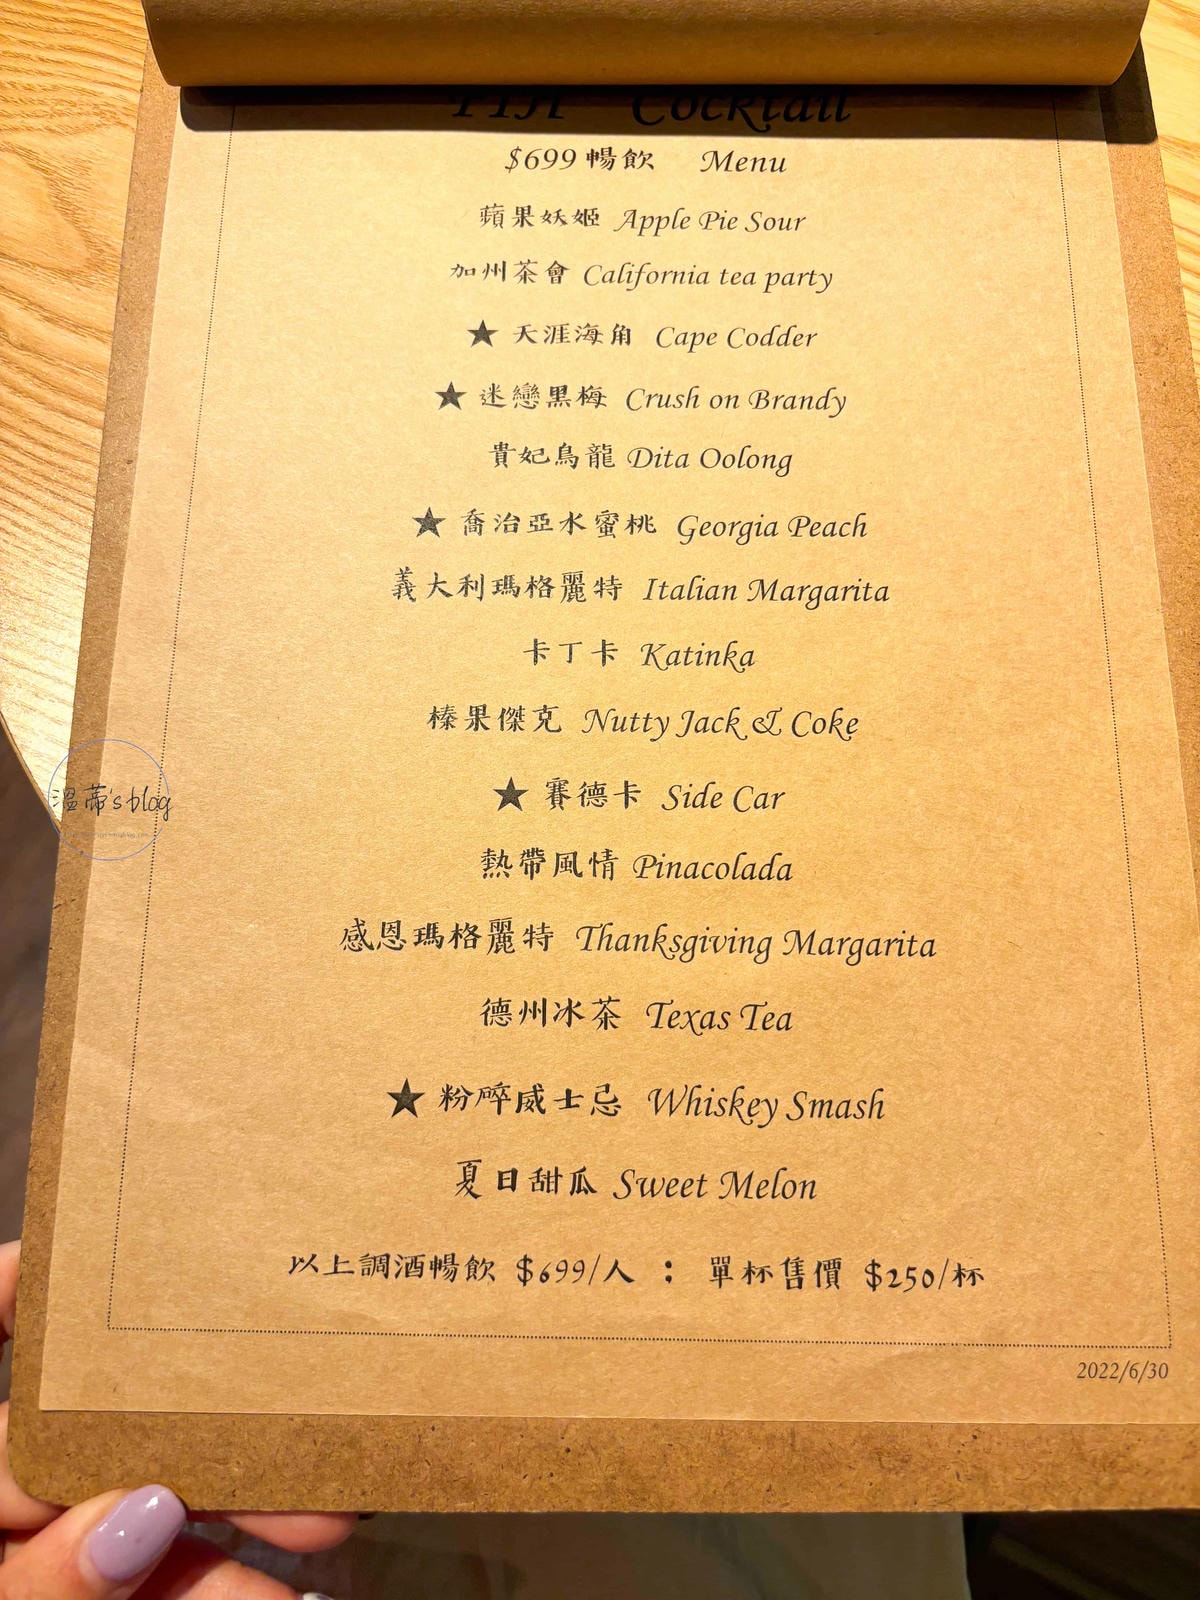 Cocktail
$699 暢飲 Menu
蘋果妖姬 Apple Pie Sour
加州茶會 California tea party
★ 天涯海角 Cape Codder
★ 迷戀黑梅 Crush on Brandy
貴妃烏龍 Dita Oolong
★ 喬治亞水蜜桃 Georgia Peach
義大利瑪格麗特 Italian Margarita
卡丁卡 Katinka
榛果傑克 Nutty Jack & Coke
★ 賽德卡 Side Car
熱帶風情 Pinacolada
感恩瑪格麗特 Thanksgiving Margarita
德州冰茶 Texas Tea
★ 粉碎威士忌 Whiskey Smash
夏日甜瓜 Sweet Melon
以上調酒暢飲 $699/人 : 單杯售價 $250/杯
2022/6/30
溫蒂's blog